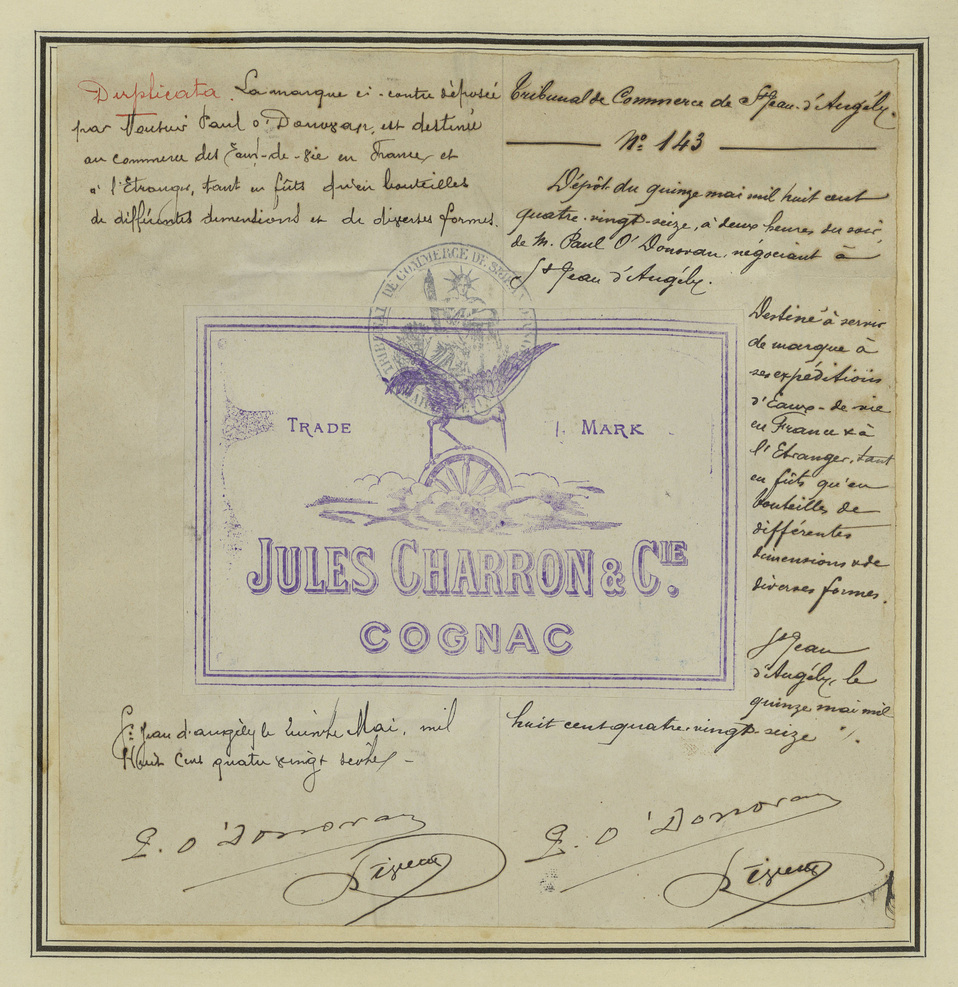 Duplicata. La marque ci-contre déposée
par Monsieur Paul O'Donovan, est destinée
au commerce des Eaux-de-vie en France et
à l'Etranger, tant en fûts qu'en bouteilles
de différentes dimensions et de diverses formes.
Tribunal de Commerce de St Jean-d'Angély.
No 143
Dépôt du quinze mai mil huit cent
quatre-vingt-seize, à deux heures du soir,
de M. Paul O'Donovan, négociant à
St Jean d'Angély.
Destiné à servir
de marque à
ses expéditions
d'Eaux-de-vie
en France & à
l'Etranger, tant
en fûts qu'en
bouteilles de
différentes
dimensions & de
diverses formes.
St Jean
d'Angély, le
quinze mai mil
huit cent quatre-vingt-seize
TRIBUNAL DE COMMERCE DE ST JEAN
TRADE MARK
JULES CHARRON & CIE.
COGNAC
St Jean d'angély le Quinze Mai, mil
Huit Cent quatre vingt seize
P. O'Donovan
P. O'Donovan